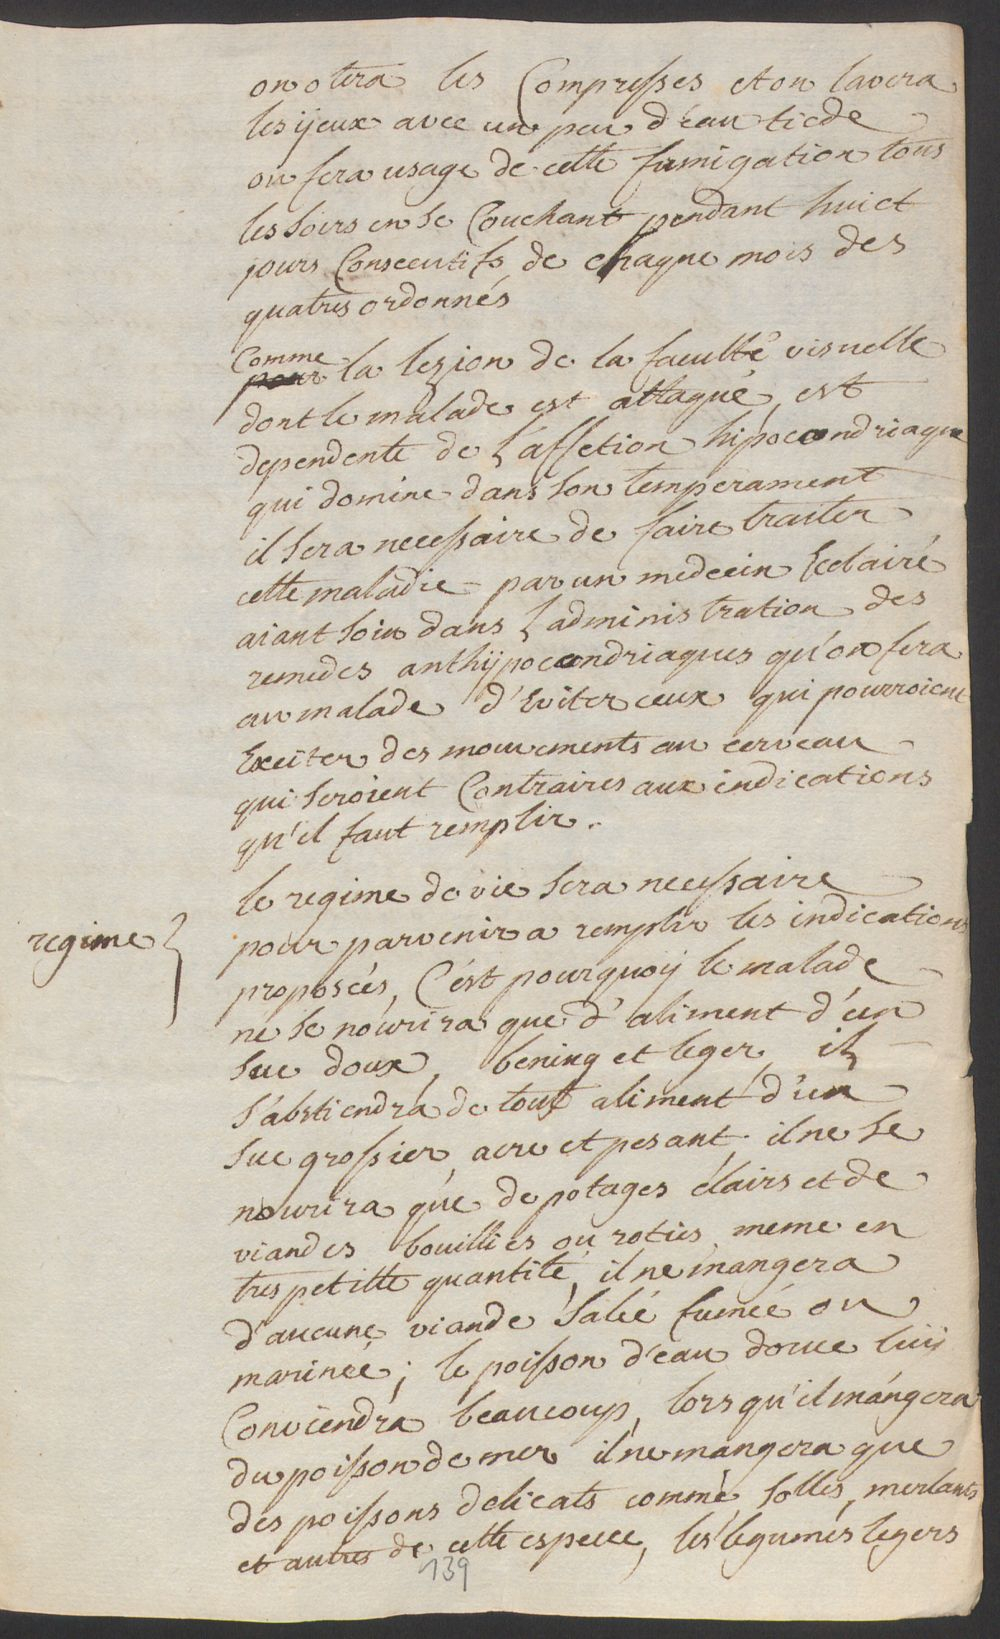 on otera les Compresses et on lavera
les ijeux avec un peu d'eau tiede
on fera usage de cette fumigation tous
les soirs en se Couchant pendant huict
jours Consecutifs de chaque mois des
quatres ordonnés
Comme
pour la lezion de la faculté visuelle
dont le malade est attaqué, est
dependente de L'affection hipocondriaque
qui domine dans son temperament
il sera necessaire de faire traiter
cette maladie par un medecin Eclairé
aiant soin dans L'administration des
remedes anthijpocondriaques qu'on fera
au malade d'Eviter ceux qui pourroient
Exciter des mouvements au cerveau
qui seroient Contraires aux indications
qu'il faut remplir.
le regime de vie sera necessaire
regime } pour parvenir a remplir les indications
proposeés, C'ést pourquoij le malade
ne se nourira que d'aliment d'un
suc doux, bening et leger, il
s'abstiendra de tout aliment d'un
suc grossier, acre et pesant, il ne se
nourira que de potages clairs et de
viandes bouillies ou roties, meme en
tres petitte quantité, il ne mangera
d'aucune viande saleé fumeé ou
marineé; le poisson d'eau douce luij
Conviendra beaucoup, lors qu'il mangera
du poisson de mer il ne mangera que
des poissons delicats comme solles, merlants
et autres de cette espece, les legumes legers
139